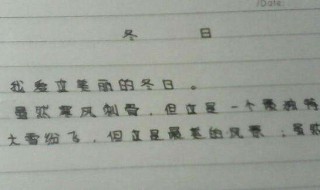 Date:
冬 日
我爱这美丽的冬日。
虽然寒风刺骨，但这是一个最独特
大雪纷飞，但这是最美的风景，虽然